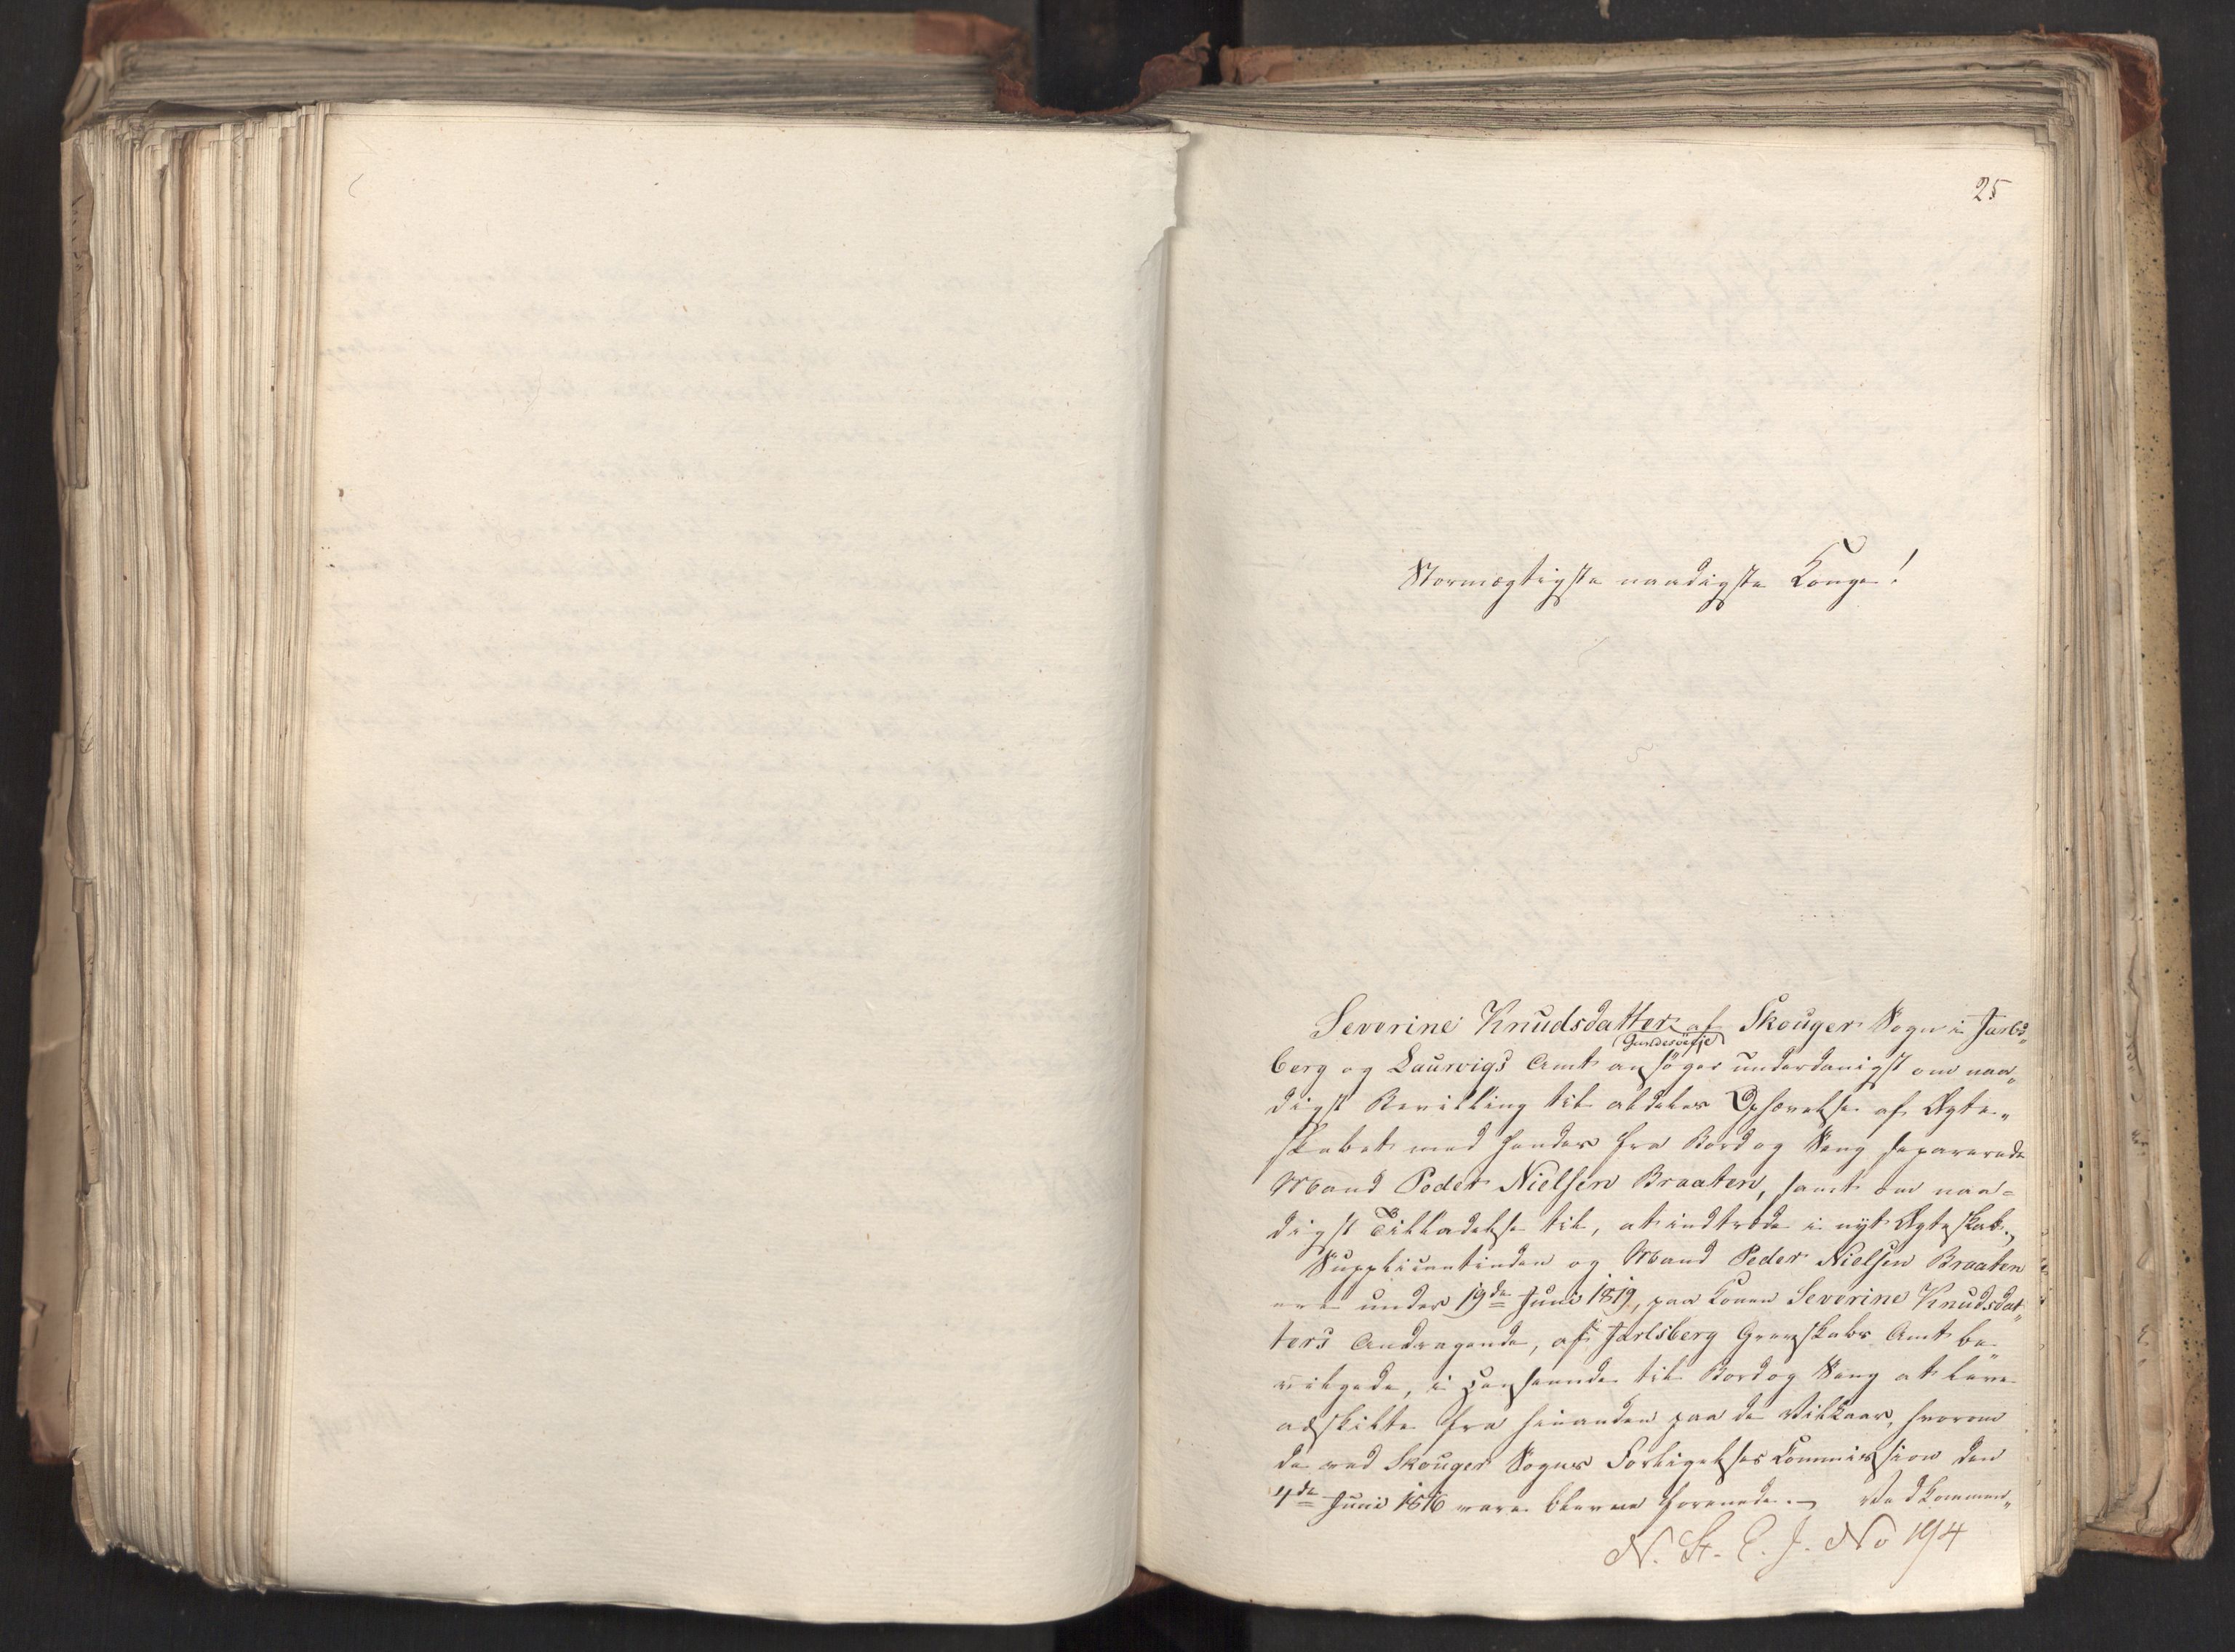 25
Stormægtigste naadigste Konge!
Severine Knudsdatter af Skouger Sogn i Jarls„
berg og Laurvigs Amt ansöger underdanigst om naa„
digst Bevilling til aldeles Ophævelse af Ægte„
skabet med hendes fra Bord og Seng separerede
Mand Peder Nielsen Braaten, samt om naa=
digst Tilladelse til, at indtræde i nyt Ægteskab.
Supplicantinden og Mand Peder Nielsen Braaten
ere under 19de Juni 1819, paa Konen Severine Knudsdat„
ters Andragende, af Jarlsberg Grevskabs Amt be„
vilgede, i Henseende til Bord og Seng at leve
adskilte fra hinanden paa de Vilkaar, hvorom
de ved Skouger Sogns Forligelses Kommission den
4de Juni 1816 vare blevne forenede. Vedkommen„
N. St. E. J. No 194